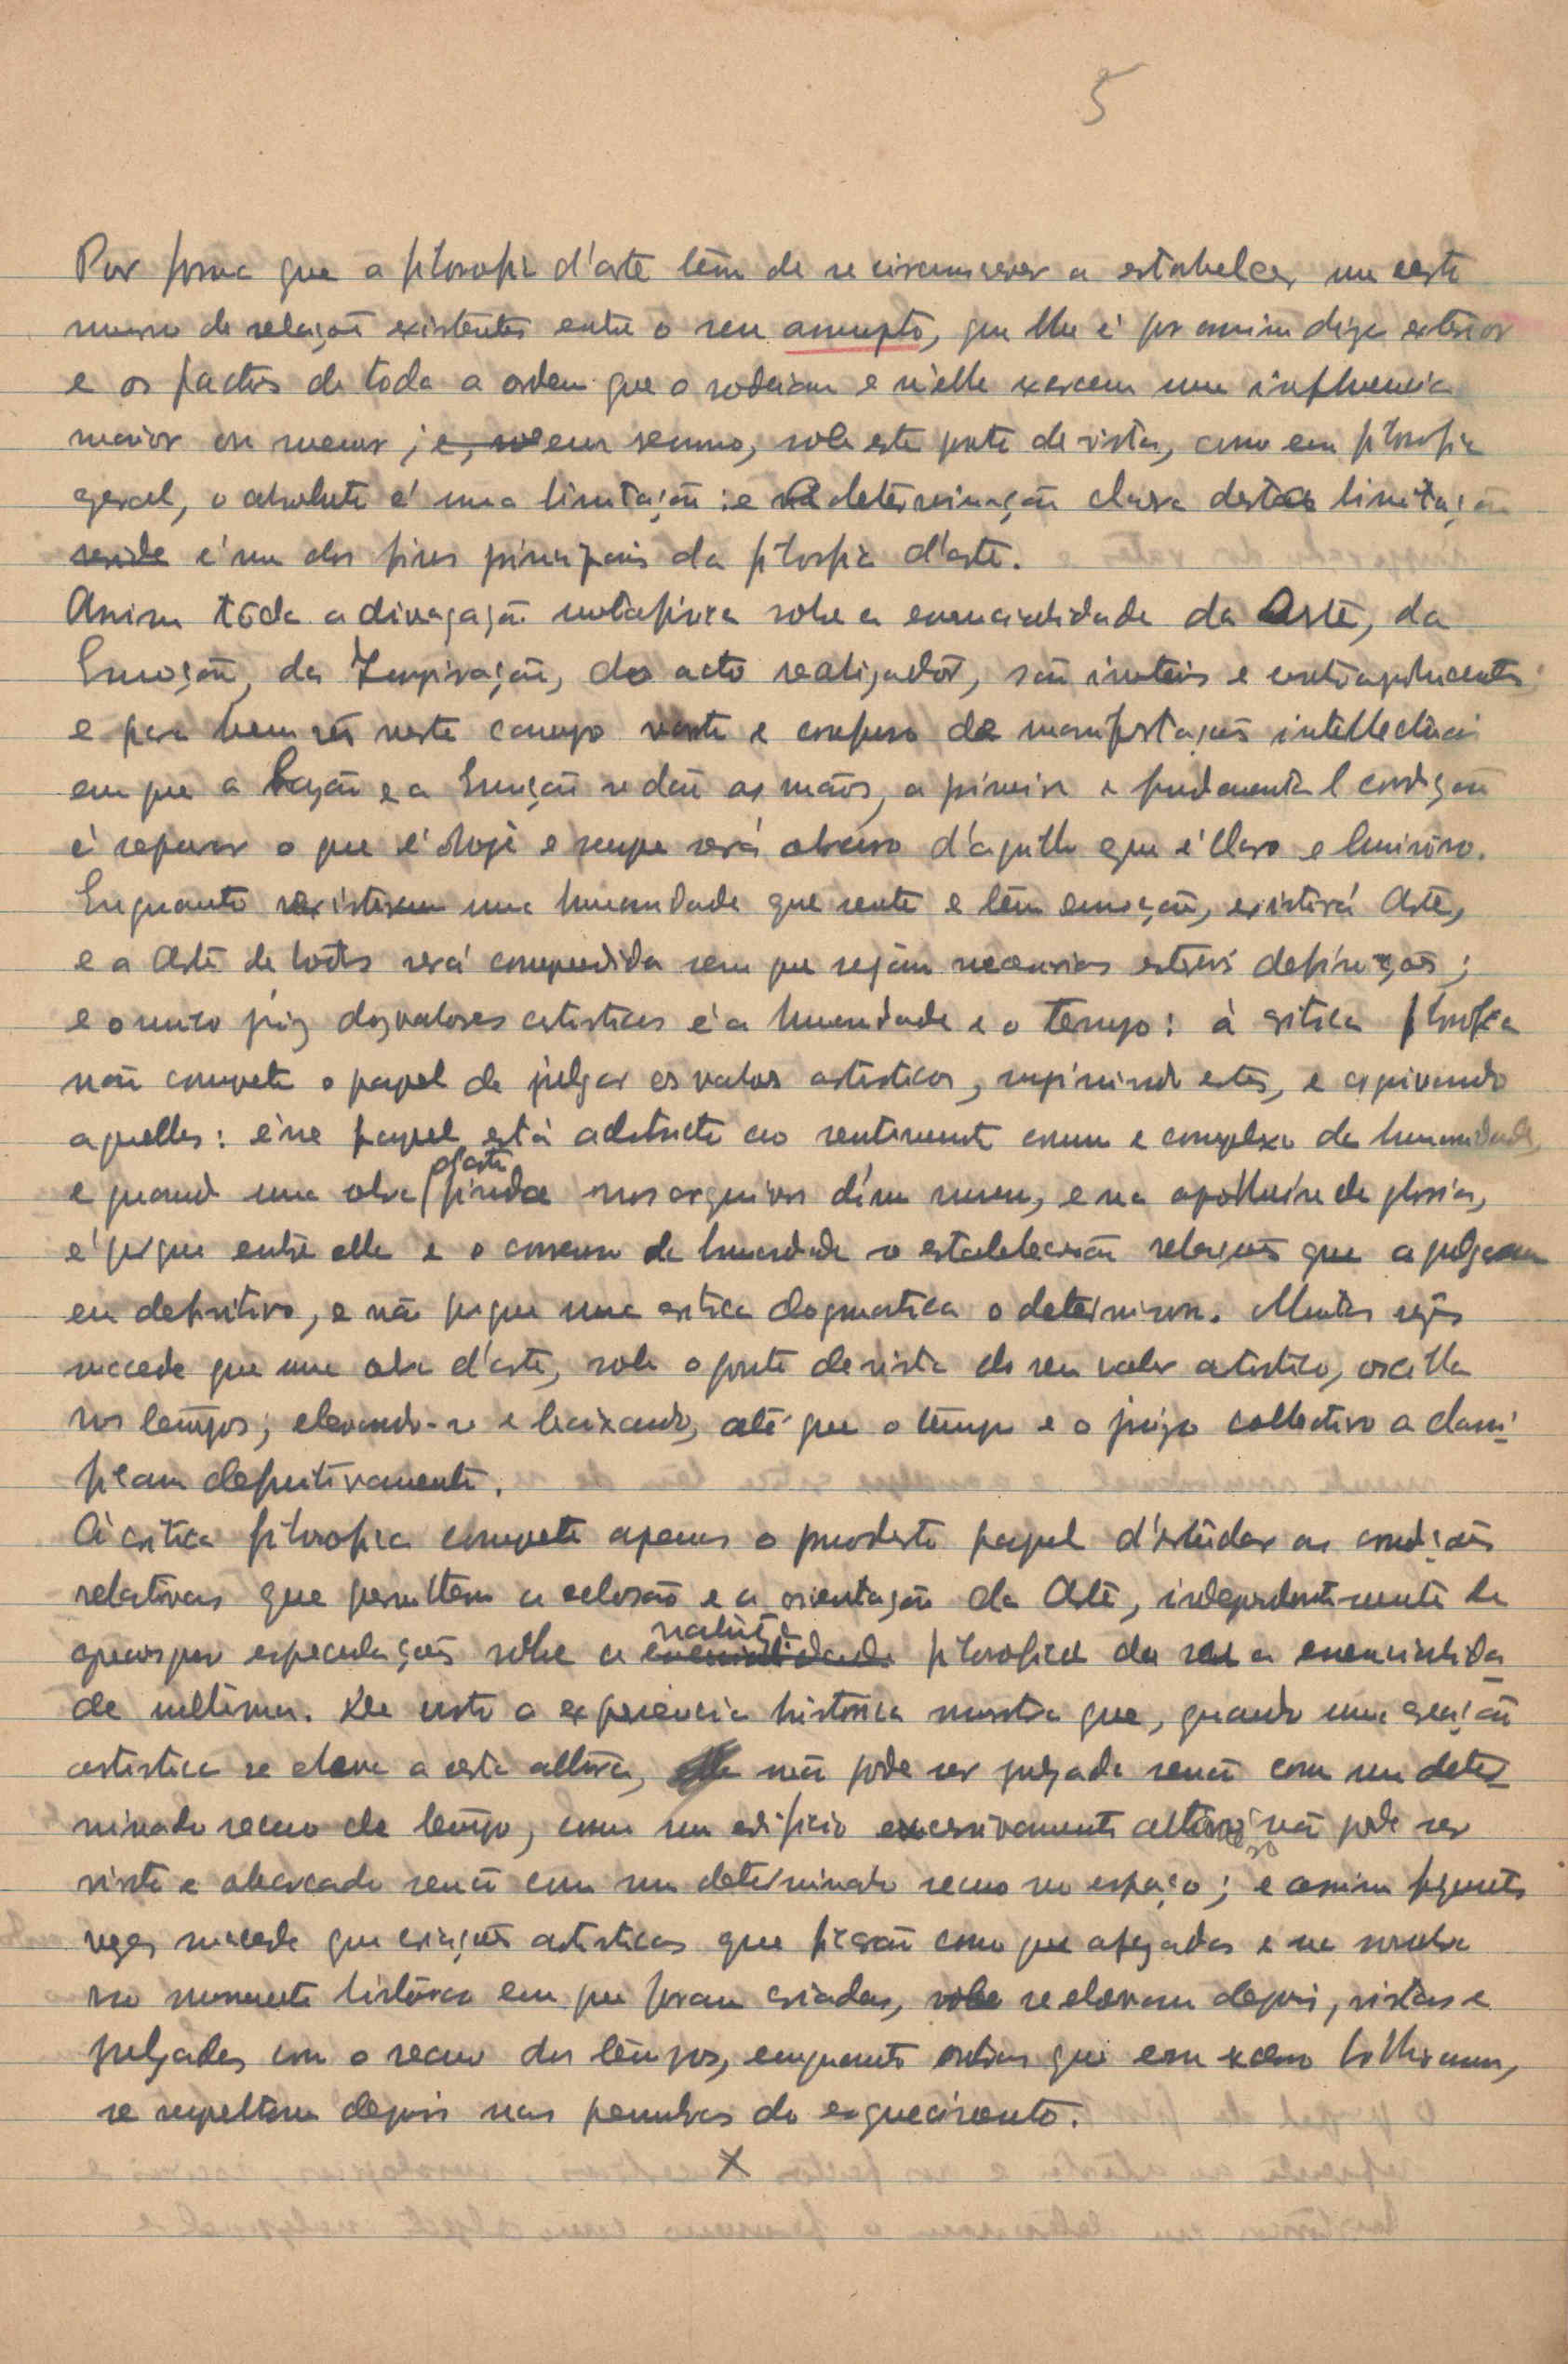 5
Por forma que a filosofia d'arte têm de se circumscrever a estabelecer um certo
numero de relações existentes entre o seu assumpto, que lhe é por assim dizer exterior
e os factos de toda a ordem que o rodeiam e n'elle exercem uma influencia
maior ou menor; e, em resumo, sob este ponto de vista, como em filosofia
geral, o absoluto é uma limitação: e a determinação clara desta limitação
reside é um dos fins principais da filosofia d'arte.
Assim tôda a divagação metafisica sobre a essencialidade da Arte, da
Emoção, da Inspiração, do acto realizador, são inuteis e contraproducentes
e para bem ver neste campo vasto e confuso de manifestações intellectuais
em que a Razão e a Emoção se dão as mãos, a primeira e fundamental condição
é separar o que é hoje e sempre será obscuro d'aquillo que é claro e luminoso.
Enquanto existir uma humanidade que sente e têm emoção, existirá Arte,
e a Arte de todos será comprendida sem que sejam necessarias estereis definições;
e o unico juiz dos valores artisticos é a humanidade e o tempo: á critica filosofica
não compete o papel de julgar os valores artisticos, suprimindo estes, e arquivando
aquelles: ésse papel está adstricto ao sentimento comum e complexo da humanidade,
e quando uma obra d'arte finda nos arquivos d'um museu, e na apotheóse da gloria,
é porque entre ella e o consenso da humanidade se estabeleceram relações que a julgaram
em definitivo, e não porque uma critica dogmatica o determinou. Muitas vezes
succede que uma obra d'arte, sob o ponto de vista do seu valor artistico, oscilla
nos tempos; elevando-se e baixando, até que o tempo e o juizo collectivo a classi-
ficam definitivamente.
Á critica filosofica compete apenas o modesto papel d'estudar as condições
relativas que permittem a eclosão e a orientação da Arte, independentemente de
quaisquer especulações sobre a essencialidade natureza filosofica da sua essencialida-
de ultima. De resto a experiencia historica mostra que, quando uma creação
artistica se eleva a certa altura, não pode ser julgada senão com um deter-
minado recuo de tempo, como um edificio excessivamente alto não pode ser
visto e abarcado senão com um determinado recuo no espaço; e assim frequentes
vezes succede que criações artisticas que ficarão como que apagadas e na sombra
no momento historico em que foram criadas, se elevam depois, vistas e
julgadas com o recuo dos tempos, emquanto outras que em excesso brilharam,
se sepultam depois nas penumbras do esquecimento.
X